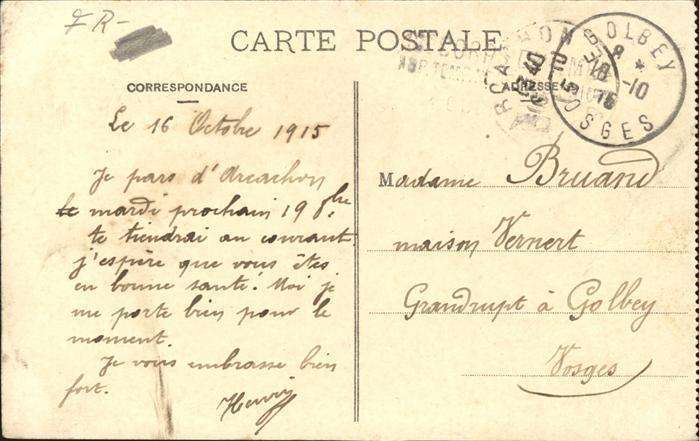 FR-
CARTE POSTALE
CORRESPONDANCE
ADRESSE
ARCACHON
GOLBEY
VOSGES
Le 16 Octobre 1915
Je pars d'Arcachon
le mardi prochain 19 8bre.
te tiendrai au courant
j'espère que vous êtes
en bonne santé. Moi je
me porte bien pour le
moment.
Je vous embrasse bien
fort.
Henri
Madame Bruand
maison Vernert
Grandrupt à Golbey
Vosges